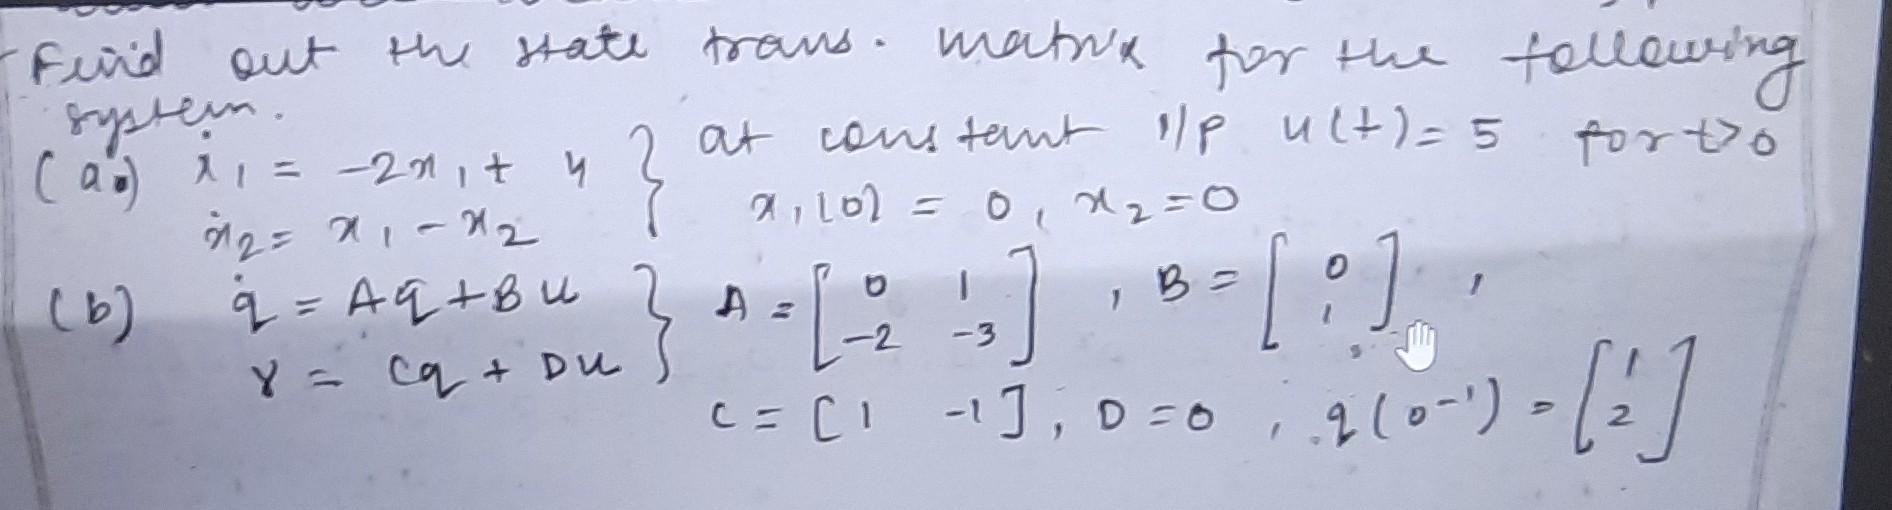 Find out the state trans. matrix for the following
system.
(a) ẋ₁ = -2x₁ + u } at constant i/p u(t) = 5 for t>0
ẋ₂ = x₁ - x₂ x₁(0) = 0, x₂ = 0
(b) q̇ = Aq + Bu } A = [0 1; -2 -3], B = [0; 1],
γ = Cq + Du C = [1 -1], D = 0, q(0⁻') = [1; 2]